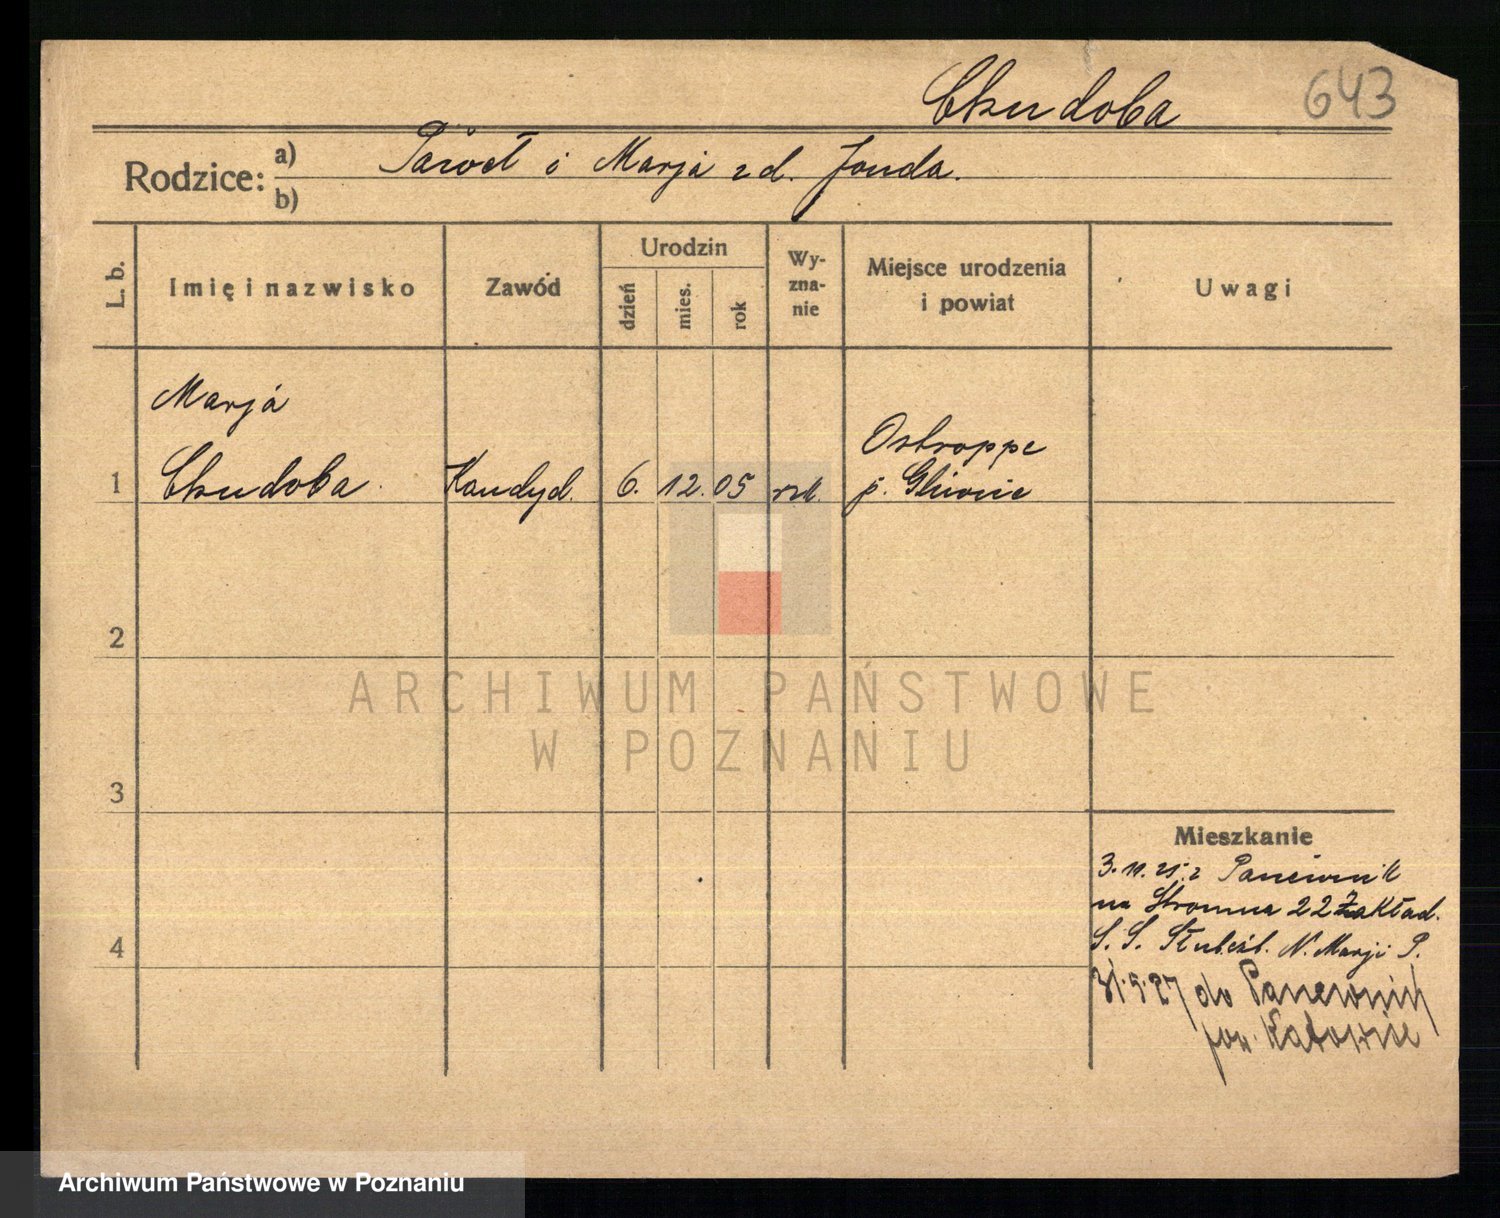 Chudoba 643
Rodzice: a) Paweł i Marja zd. Jonda.
b)
L. b.
Imię i nazwisko
Zawód
Urodzin
dzień
mies.
rok
Wy-
zna-
nie
Miejsce urodzenia
i powiat
Uwagi
Marja
Ostroppe
1 Chudoba. Kandyd. 6. 12. 05 rzk. p. Gliwice
2
ARCHIWUM PAŃSTWOWE
W POZNANIU
3
Mieszkanie
3. 11. 25. z Panewnik
na Stromna 22 Zakład.
4
S. S. Służeb. N. Marji P.
31.5.27 do Panewnik
pow. Katowice
Archiwum Państwowe w Poznaniu